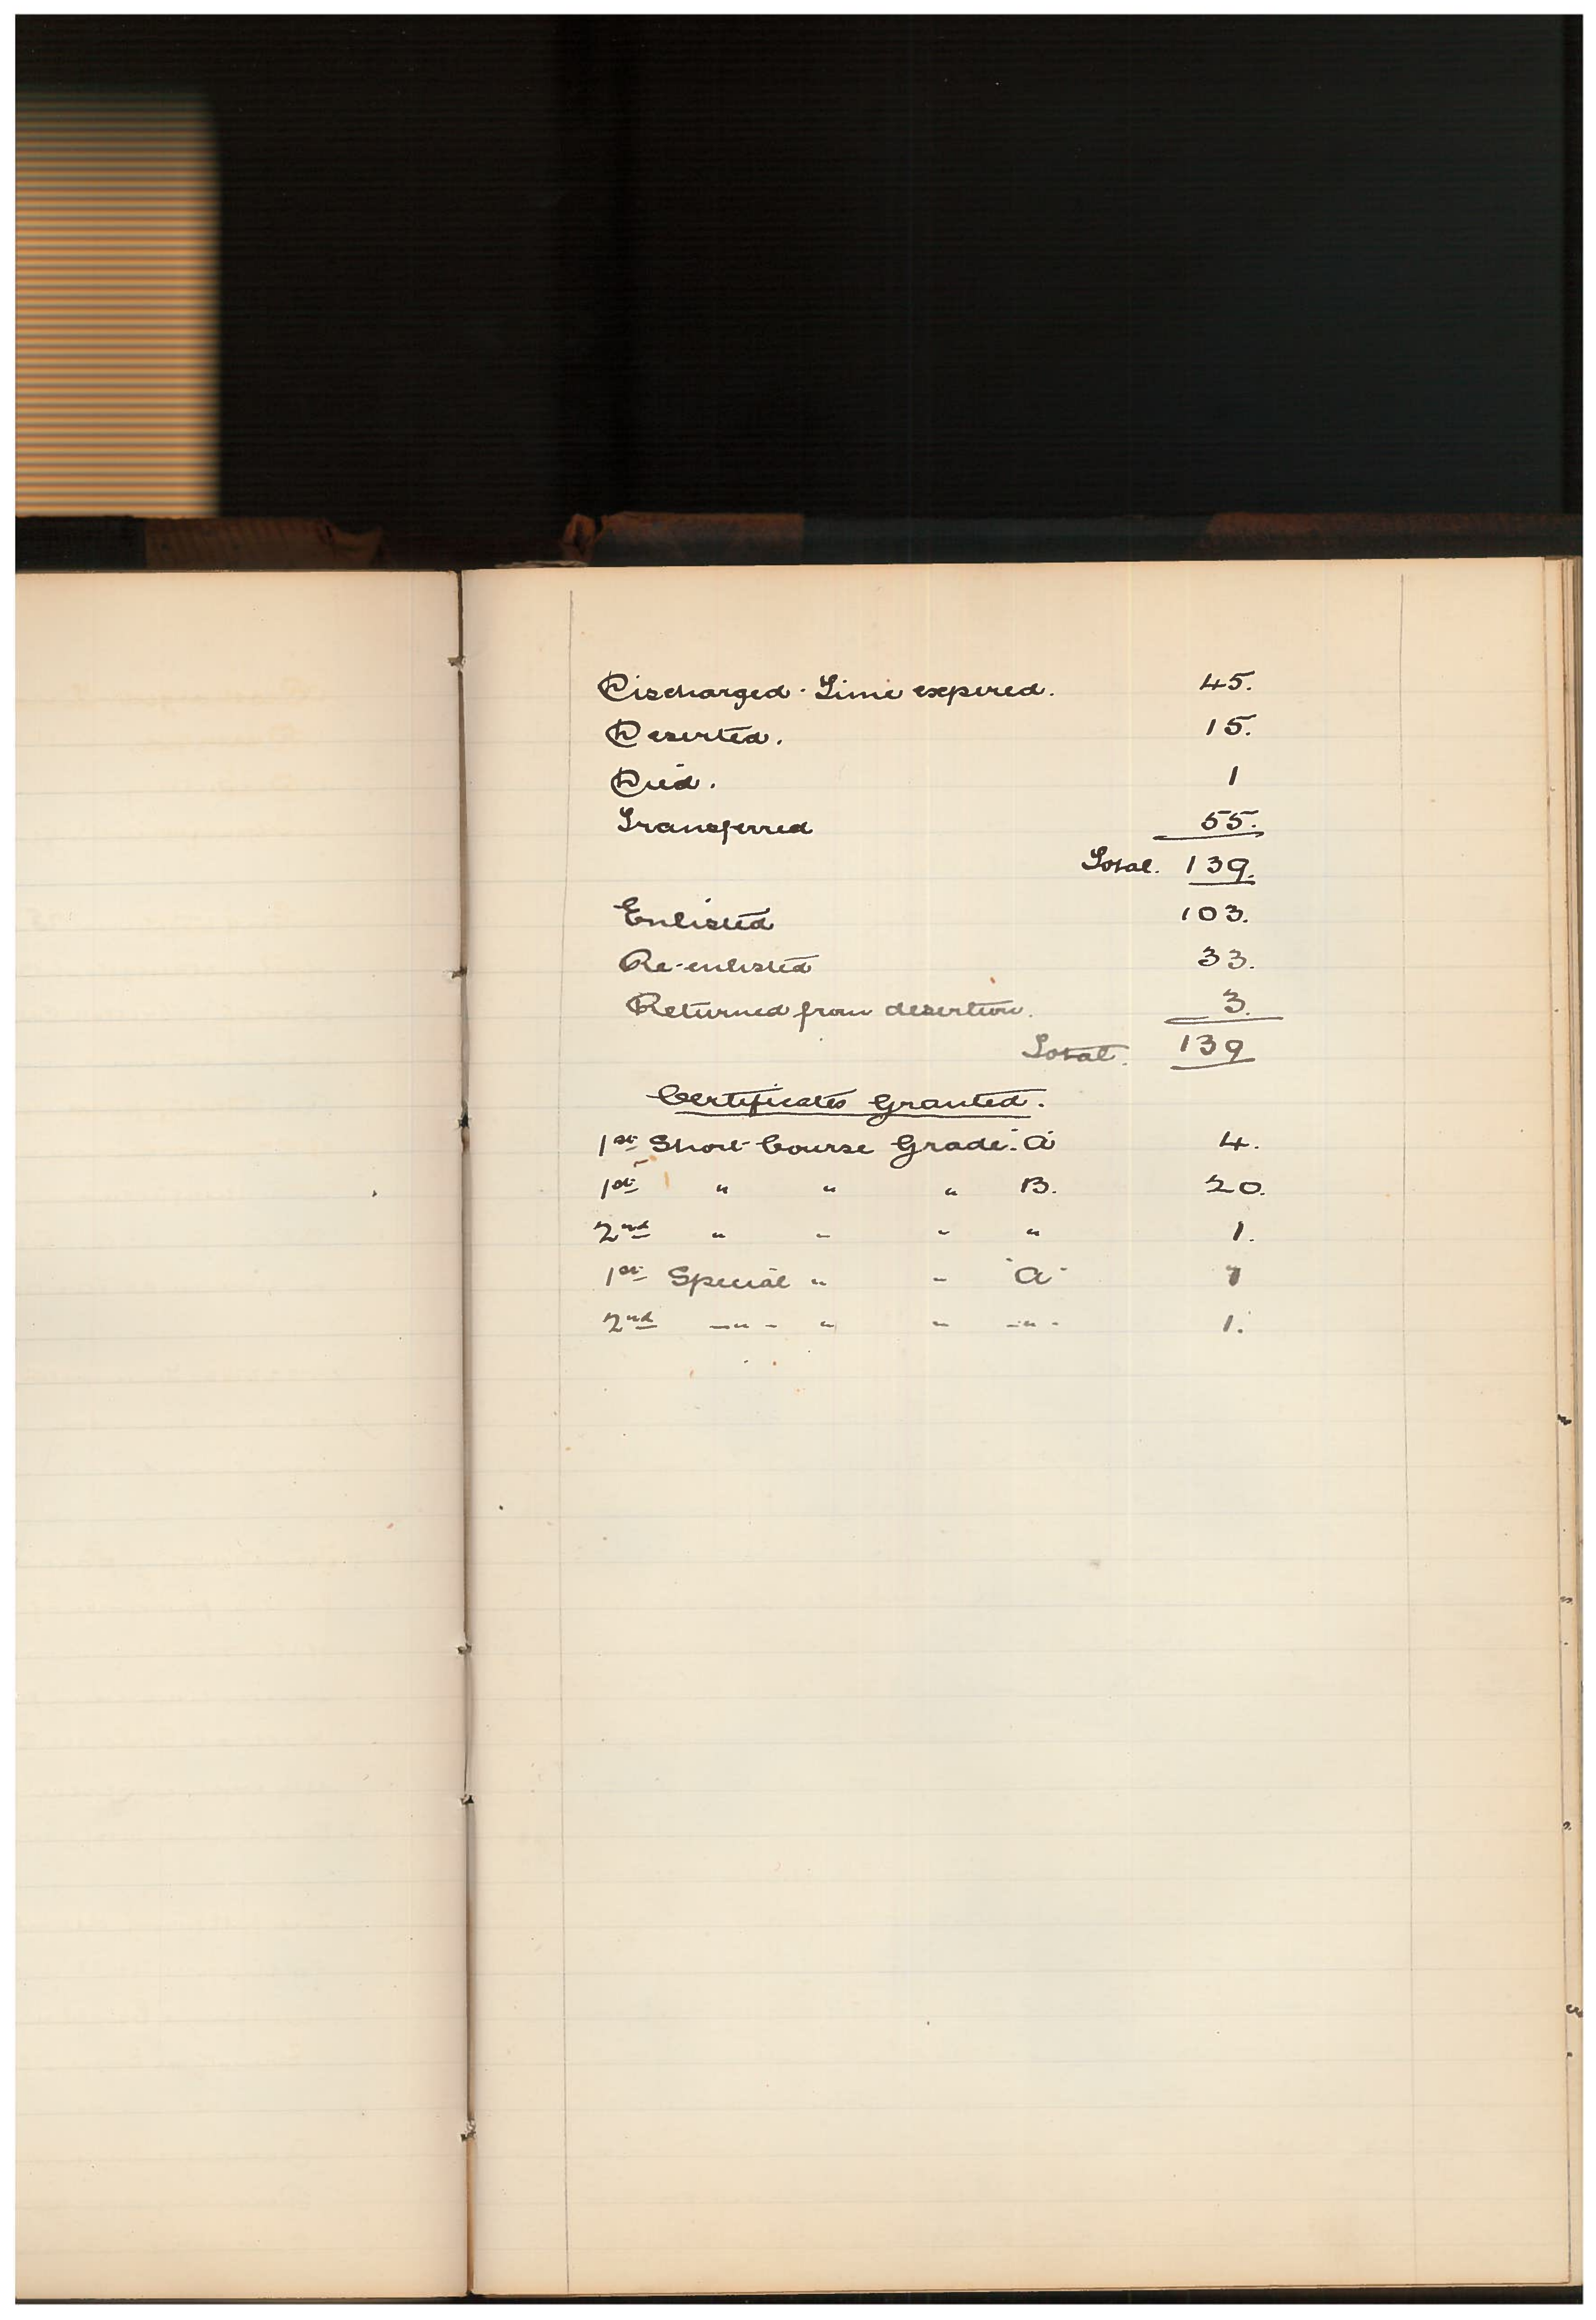 Discharged - Time expired. 45.
Deserted. 15.
Died. 1
Transferred 55.
Total. 139.
Enlisted 103.
Re-enlisted 33.
Returned from desertion. 3.
Total. 139
Certificates Granted.
1st Short Course Grade "A" 4.
1st " " " B. 20.
2nd " " " " 1.
1st Special " " "A" 7
2nd — " — " " — " — 1.